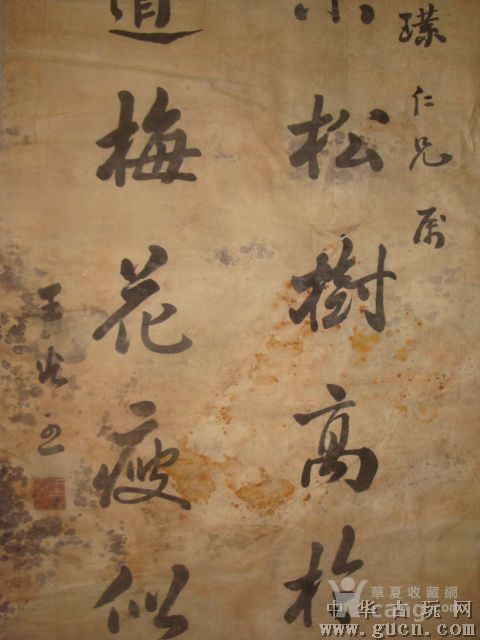 仁兄属
松樹高於
道梅花瘦似
王
華夏收藏網
cang.com
中华古玩网
www.gucn.com